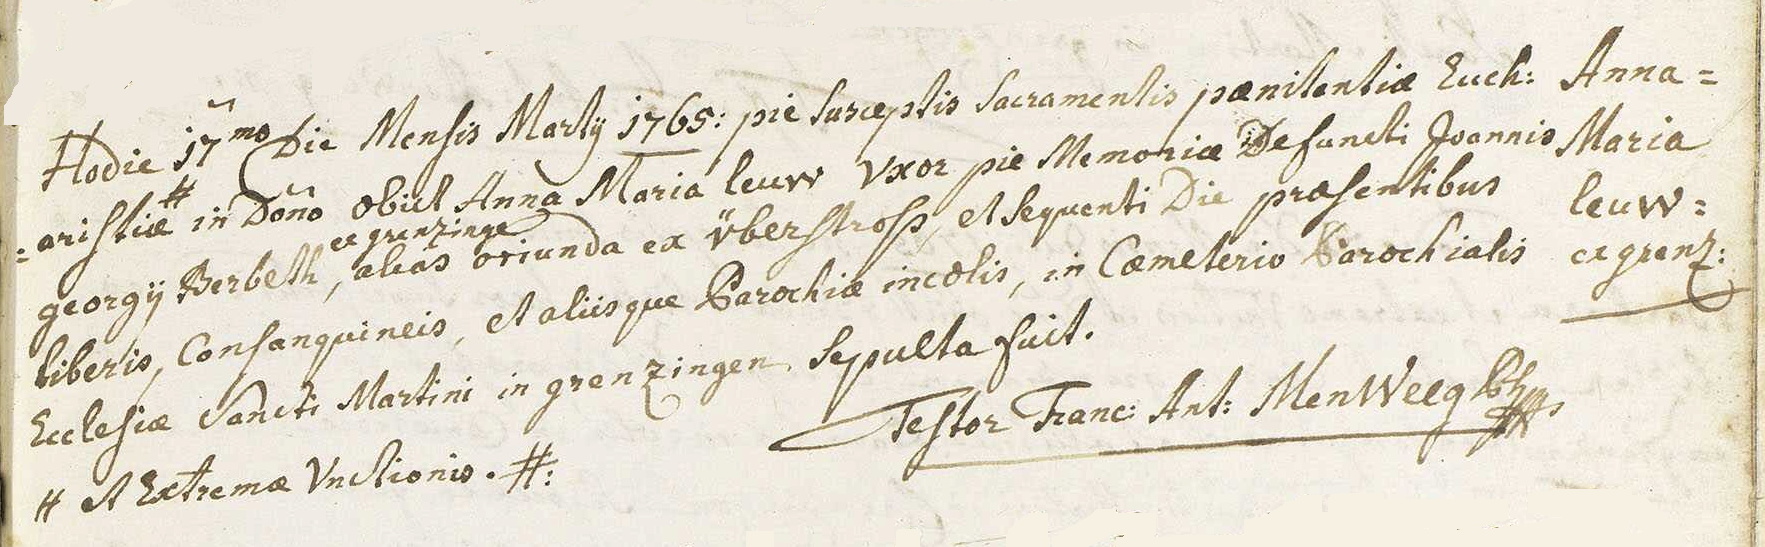 Hodie 17mo Die Mensis Martij 1765: pie susceptis Sacramentis pænitentiæ Euch: Anna =
= aristiæ # in Doño obiit Anna Maria leuw Vxor piæ Memoriæ Defuncti Joannis Maria
ex grenzinge
georgij Berbeth, alias oriunda ex überstross, et sequenti Die præsentibus leuw =
liberis, Consanquineis, et aliisque Parochiæ incolis, in Cœmeterio Parochialis ex grenz:
Ecclesiæ Sancti Martini in grenzingen sepulta fuit.
Testor Franc: Ant: MenWeeg
# et Extremæ Vnctionis . #: